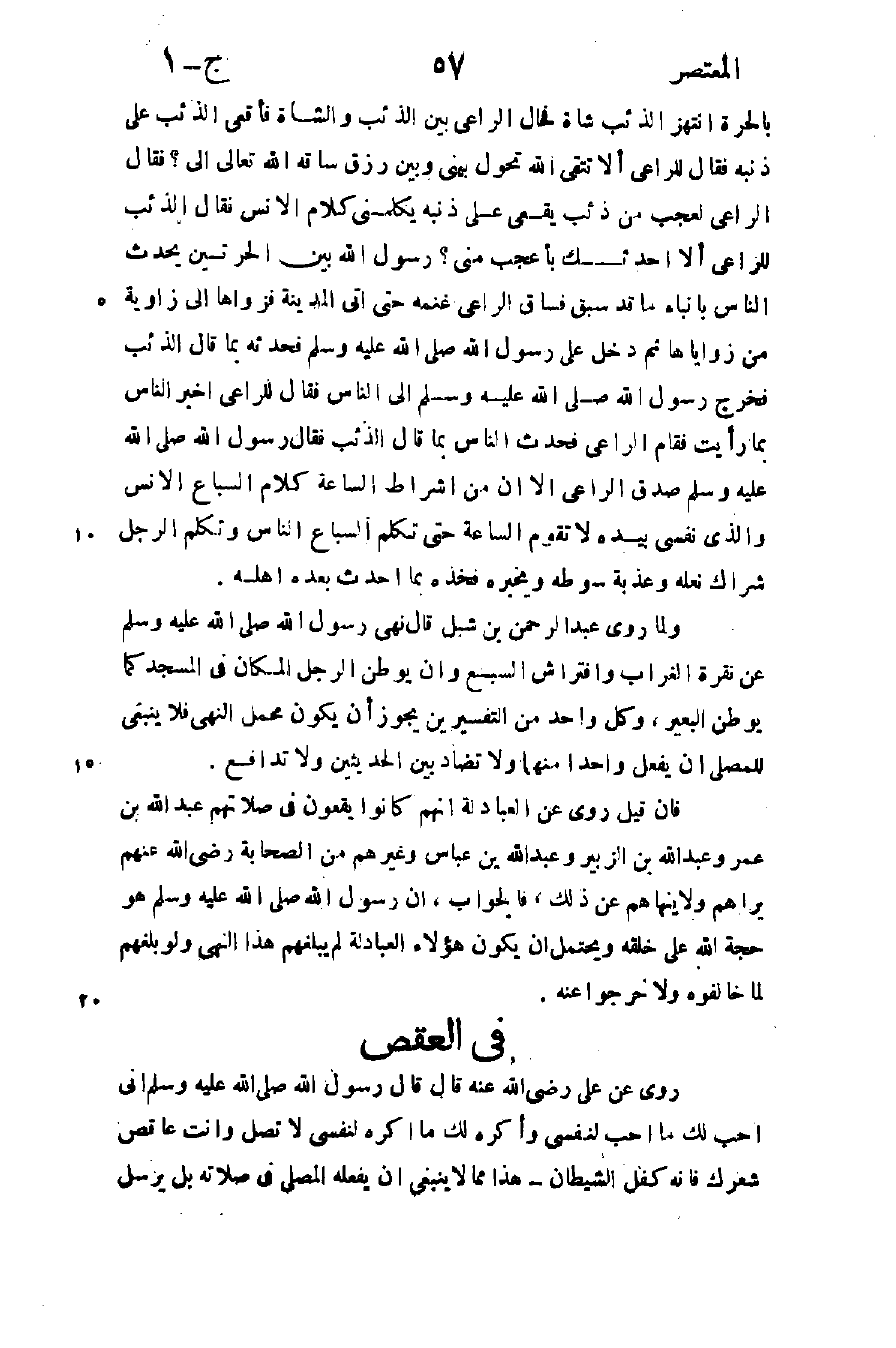 المعتصر ٥٧ ج - ١
بالحرة انتهز الذئب شاة فحال الراعى بين الذئب والشاة فأقعى الذئب على
ذنبه فقال للراعى ألا تتقى الله تحول بينى وبين رزق ساقه الله تعالى الى ؟ فقال
الراعى لعجب من ذئب يقعى على ذنبه يكلمنى كلام الانس فقال الذئب
للراعى ألا احدثك بأعجب منى ؟ رسول الله بين الحرتين يحدث
الناس بانباء ما قد سبق فساق الراعى غنمه حتى اتى المدينة فزواها الى زاوية ٥
من زواياها ثم دخل على رسول الله صلى الله عليه وسلم فحدثه بما قال الذئب
فخرج رسول الله صلى الله عليه وسلم الى الناس فقال للراعى اخبر الناس
بما رأيت فقام الراعى فحدث الناس بما قال الذئب فقال رسول الله صلى الله
عليه وسلم صدق الراعى الا ان من اشراط الساعة كلام السباع الانس
والذى نفسى بيده لا تقوم الساعة حتى تكلم السباع الناس وتكلم الرجل ١٠
شراك نعله وعذبة سوطه ويخبره فخذه بما احدث بعده اهله .
ولما روى عبدالرحمن بن شبل قال نهى رسول الله صلى الله عليه وسلم
عن نقرة الغراب وافتراش السبع وان يوطن الرجل المكان فى المسجد كما
يوطن البعير ، وكل واحد من التفسيرين يجوز أن يكون محمل النهى فلا ينبغى
للمصلى ان يفعل واحدا منهما ولا تضاد بين الحديثين ولا تدافع . ١٥
فان قيل روى عن العبادلة انهم كانوا يقعون فى صلاتهم عبدالله بن
عمر وعبدالله بن الزبير وعبدالله بن عباس وغيرهم من الصحابة رضى الله عنهم
يراهم ولا ينهاهم عن ذلك ، فالجواب ، ان رسول الله صلى الله عليه وسلم هو
حجة الله على خلقه ويحتمل ان يكون هؤلاء العبادلة لم يبلغهم هذا النهى ولو بلغهم
لما خالفوه ولا خرجوا عنه . ٢٠
فى العقص
روى عن على رضى الله عنه قال قال رسول الله صلى الله عليه وسلم انى
احب لك ما احب لنفسى وأكره لك ما اكره لنفسى لا تصل وانت عاقص
شعرك فانه كفل الشيطان - هذا مما لا ينبغى ان يفعله المصلى فى صلاته بل يرسل